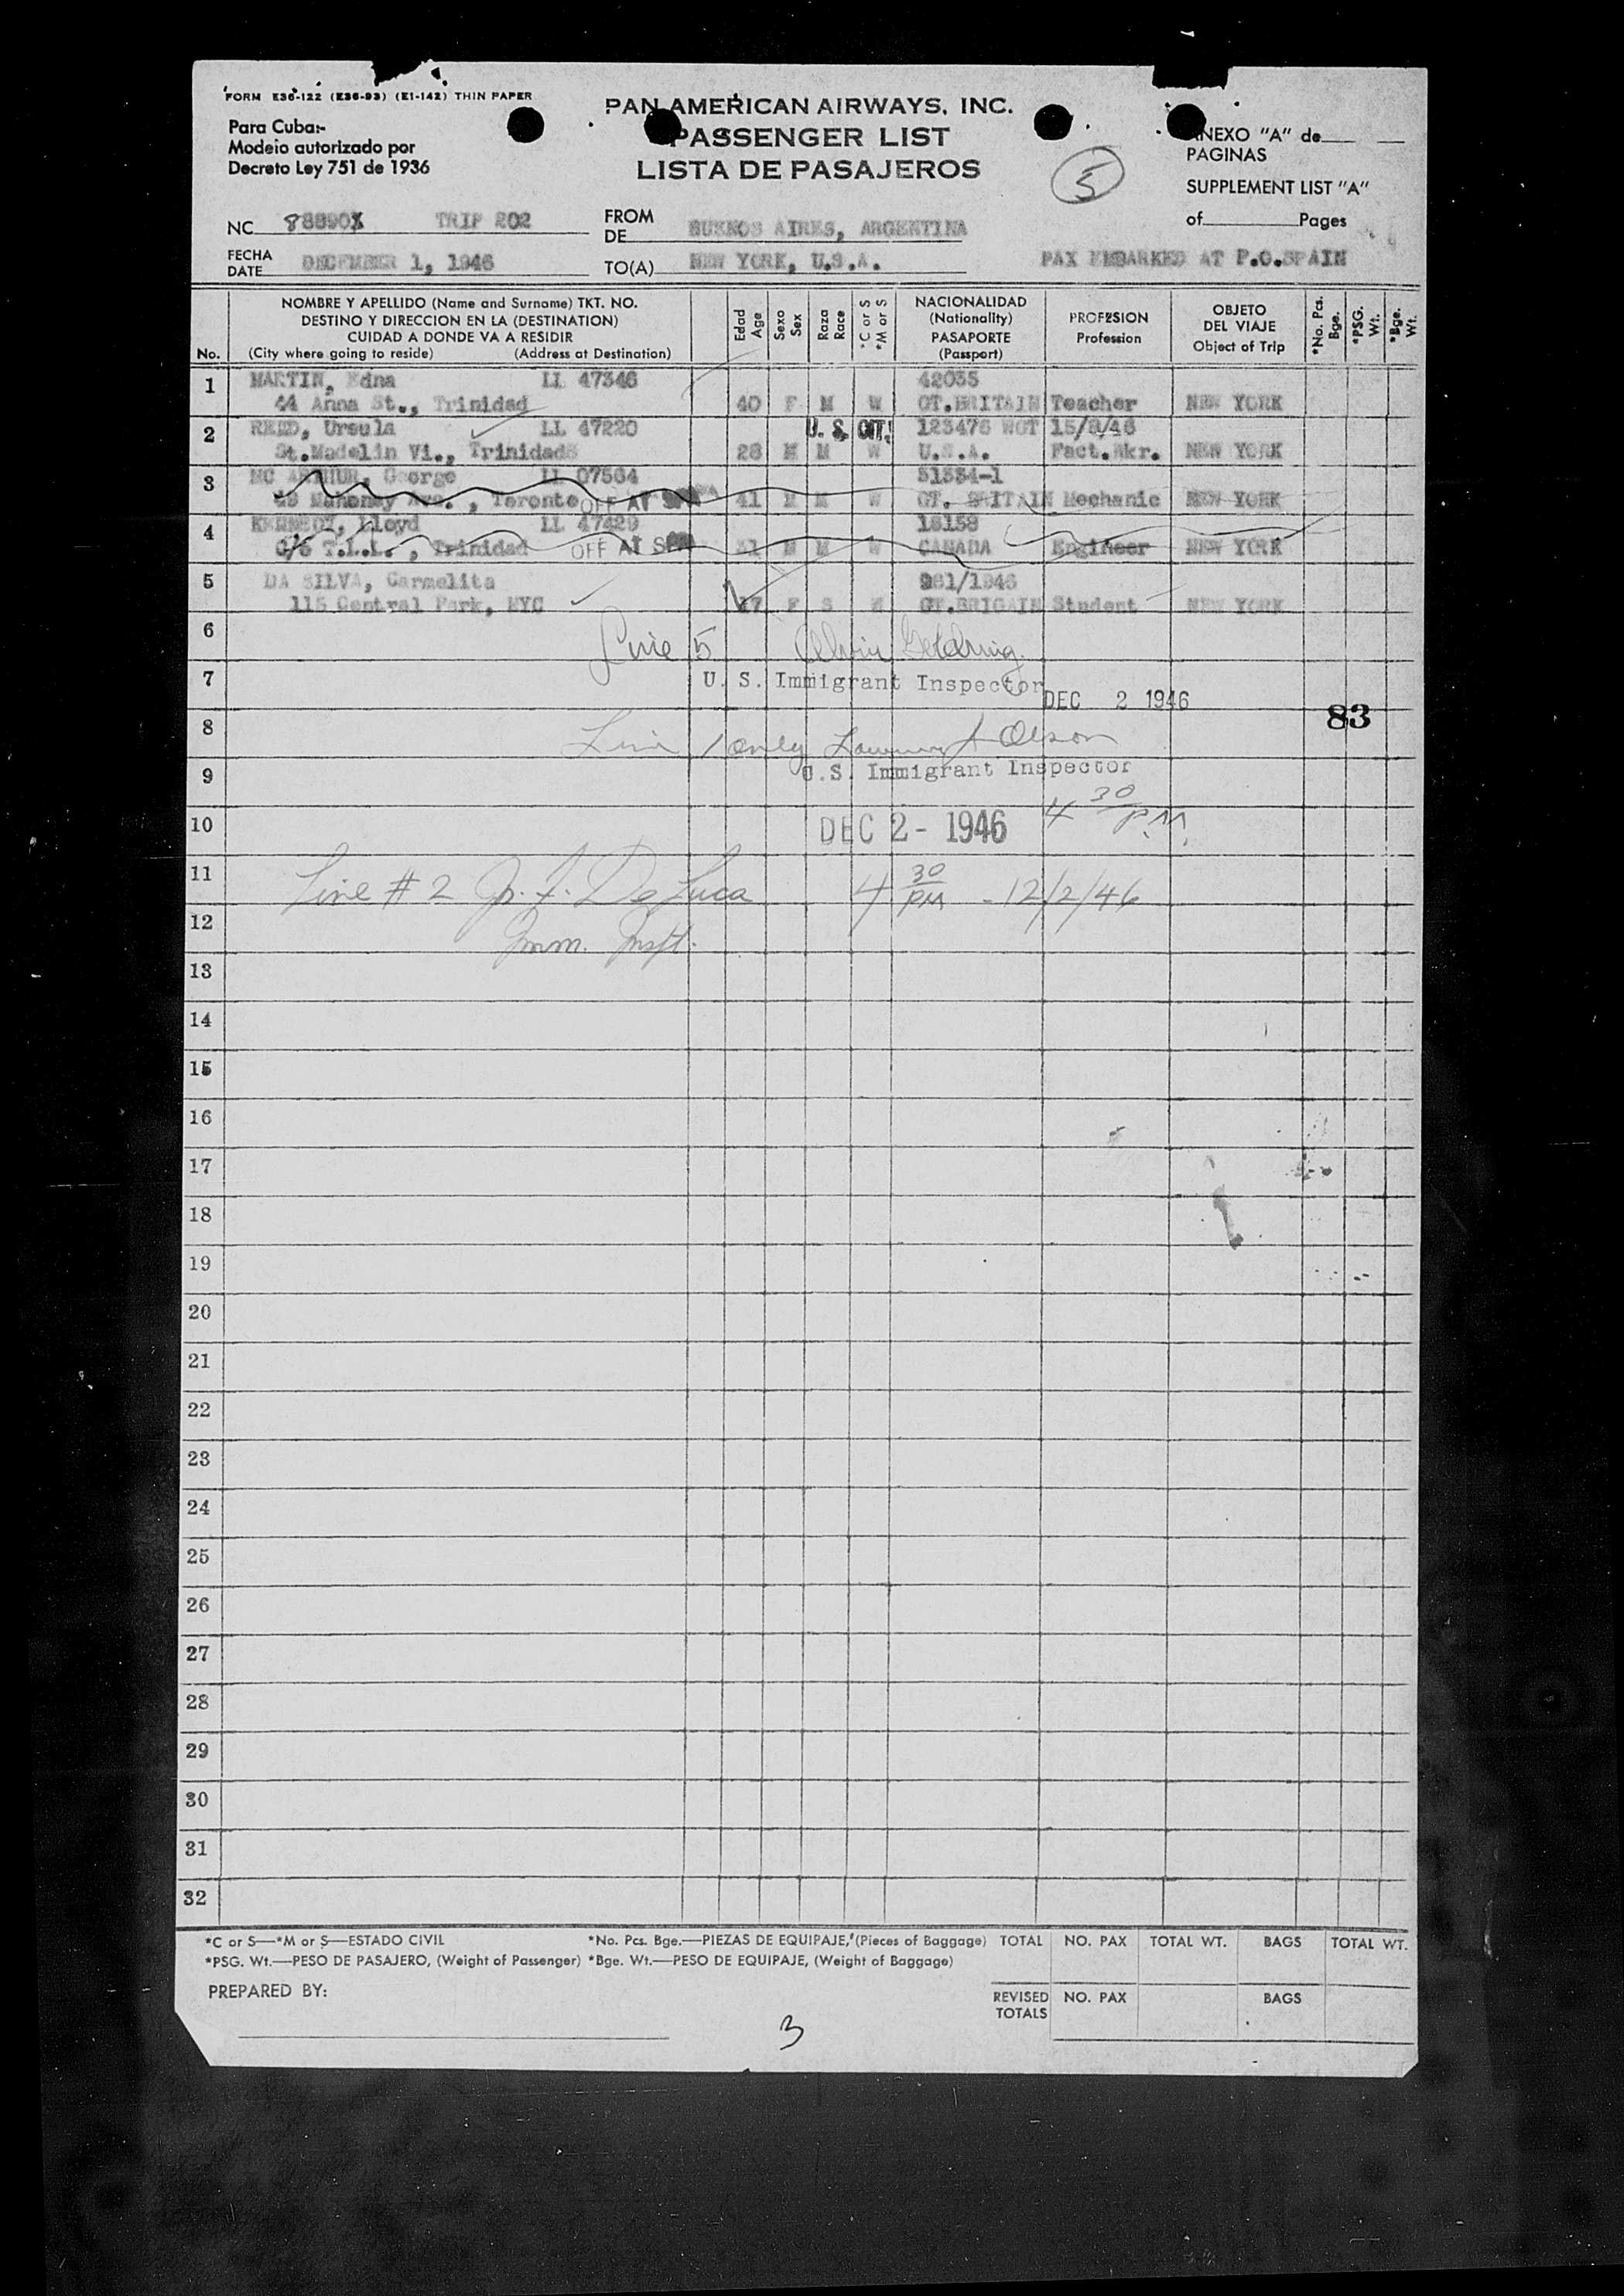 FORM E36-122 (E36-93) (E1-142) THIN PAPER
Para Cuba:-
Modelo autorizado por
Decreto Ley 751 de 1936
PAN AMERICAN AIRWAYS, INC.
PASSENGER LIST
LISTA DE PASAJEROS
5
ANEXO "A" de
PAGINAS
SUPPLEMENT LIST "A"
of Pages
NC TRIP 202
FROM DE BUENOS AIRES, ARGENTINA
FECHA DATE DECEMBER 1, 1946
TO(A) NEW YORK, U.S.A.
PAX EMBARKED AT P.O.SPAIN
No.
NOMBRE Y APELLIDO (Name and Surname) TKT. NO.
DESTINO Y DIRECCION EN LA (DESTINATION)
CUIDAD A DONDE VA A RESIDIR
(City where going to reside) (Address at Destination)
Edad Age
Sexo Sex
Raza Race
*C or S *M or S
NACIONALIDAD (Nationality) PASAPORTE (Passport)
PROFESION Profession
OBJETO DEL VIAJE Object of Trip
*No. Pcs. Bge.
*PSG. Wt.
*Bge. Wt.
1 MARTIN, Edna LL 47346 42035
44 Anna St., Trinidad 40 F M W GT.BRITAIN Teacher NEW YORK
2 REED, Ursula LL 47220 U. S. CIT. 123476 WOT 15/8/46
St.Madelin Vi., Trinidad 28 M M W U.S.A. Fact.Wkr. NEW YORK
3 MC ARTHUR, George LL 07564 51334-1
49 Mahoney Ave., Toronto OFF AT 41 M M W GT. BRITAIN Mechanic NEW YORK
4 KENNEDY, Lloyd LL 47429 16158
C/o T.L.L., Trinidad OFF AT 31 M M W CANADA Engineer NEW YORK
5 DA SILVA, Carmelita 961/1946
115 Central Park, NYC 17 F S W GT.BRIGAIN Student NEW YORK
6 Line 5
7 U. S. Immigrant Inspector DEC 2 1946
83
8 Line 1 only Olson
9 U.S. Immigrant Inspector
10 DEC 2- 1946 4 30 P.M.
11 Line # 2 De Luca 4 30 PM - 12/2/46
12 Imm. Inspt.
13
14
15
16
17
18
19
20
21
22
23
24
25
26
27
28
29
30
31
32
*C or S—*M or S—ESTADO CIVIL *No. Pcs. Bge.—PIEZAS DE EQUIPAJE, (Pieces of Baggage)
*PSG. Wt.—PESO DE PASAJERO, (Weight of Passenger) *Bge. Wt.—PESO DE EQUIPAJE, (Weight of Baggage)
TOTAL NO. PAX TOTAL WT. BAGS TOTAL WT.
PREPARED BY:
REVISED TOTALS NO. PAX BAGS
3